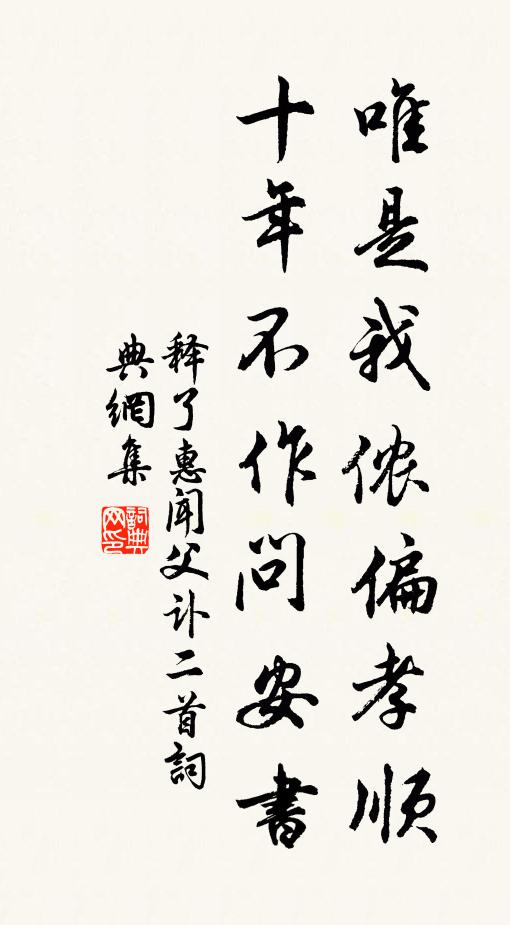 唯是我侬偏孝顺
十年不作问安書
释了惠闻父讣二首詞
典網集
詞典網印